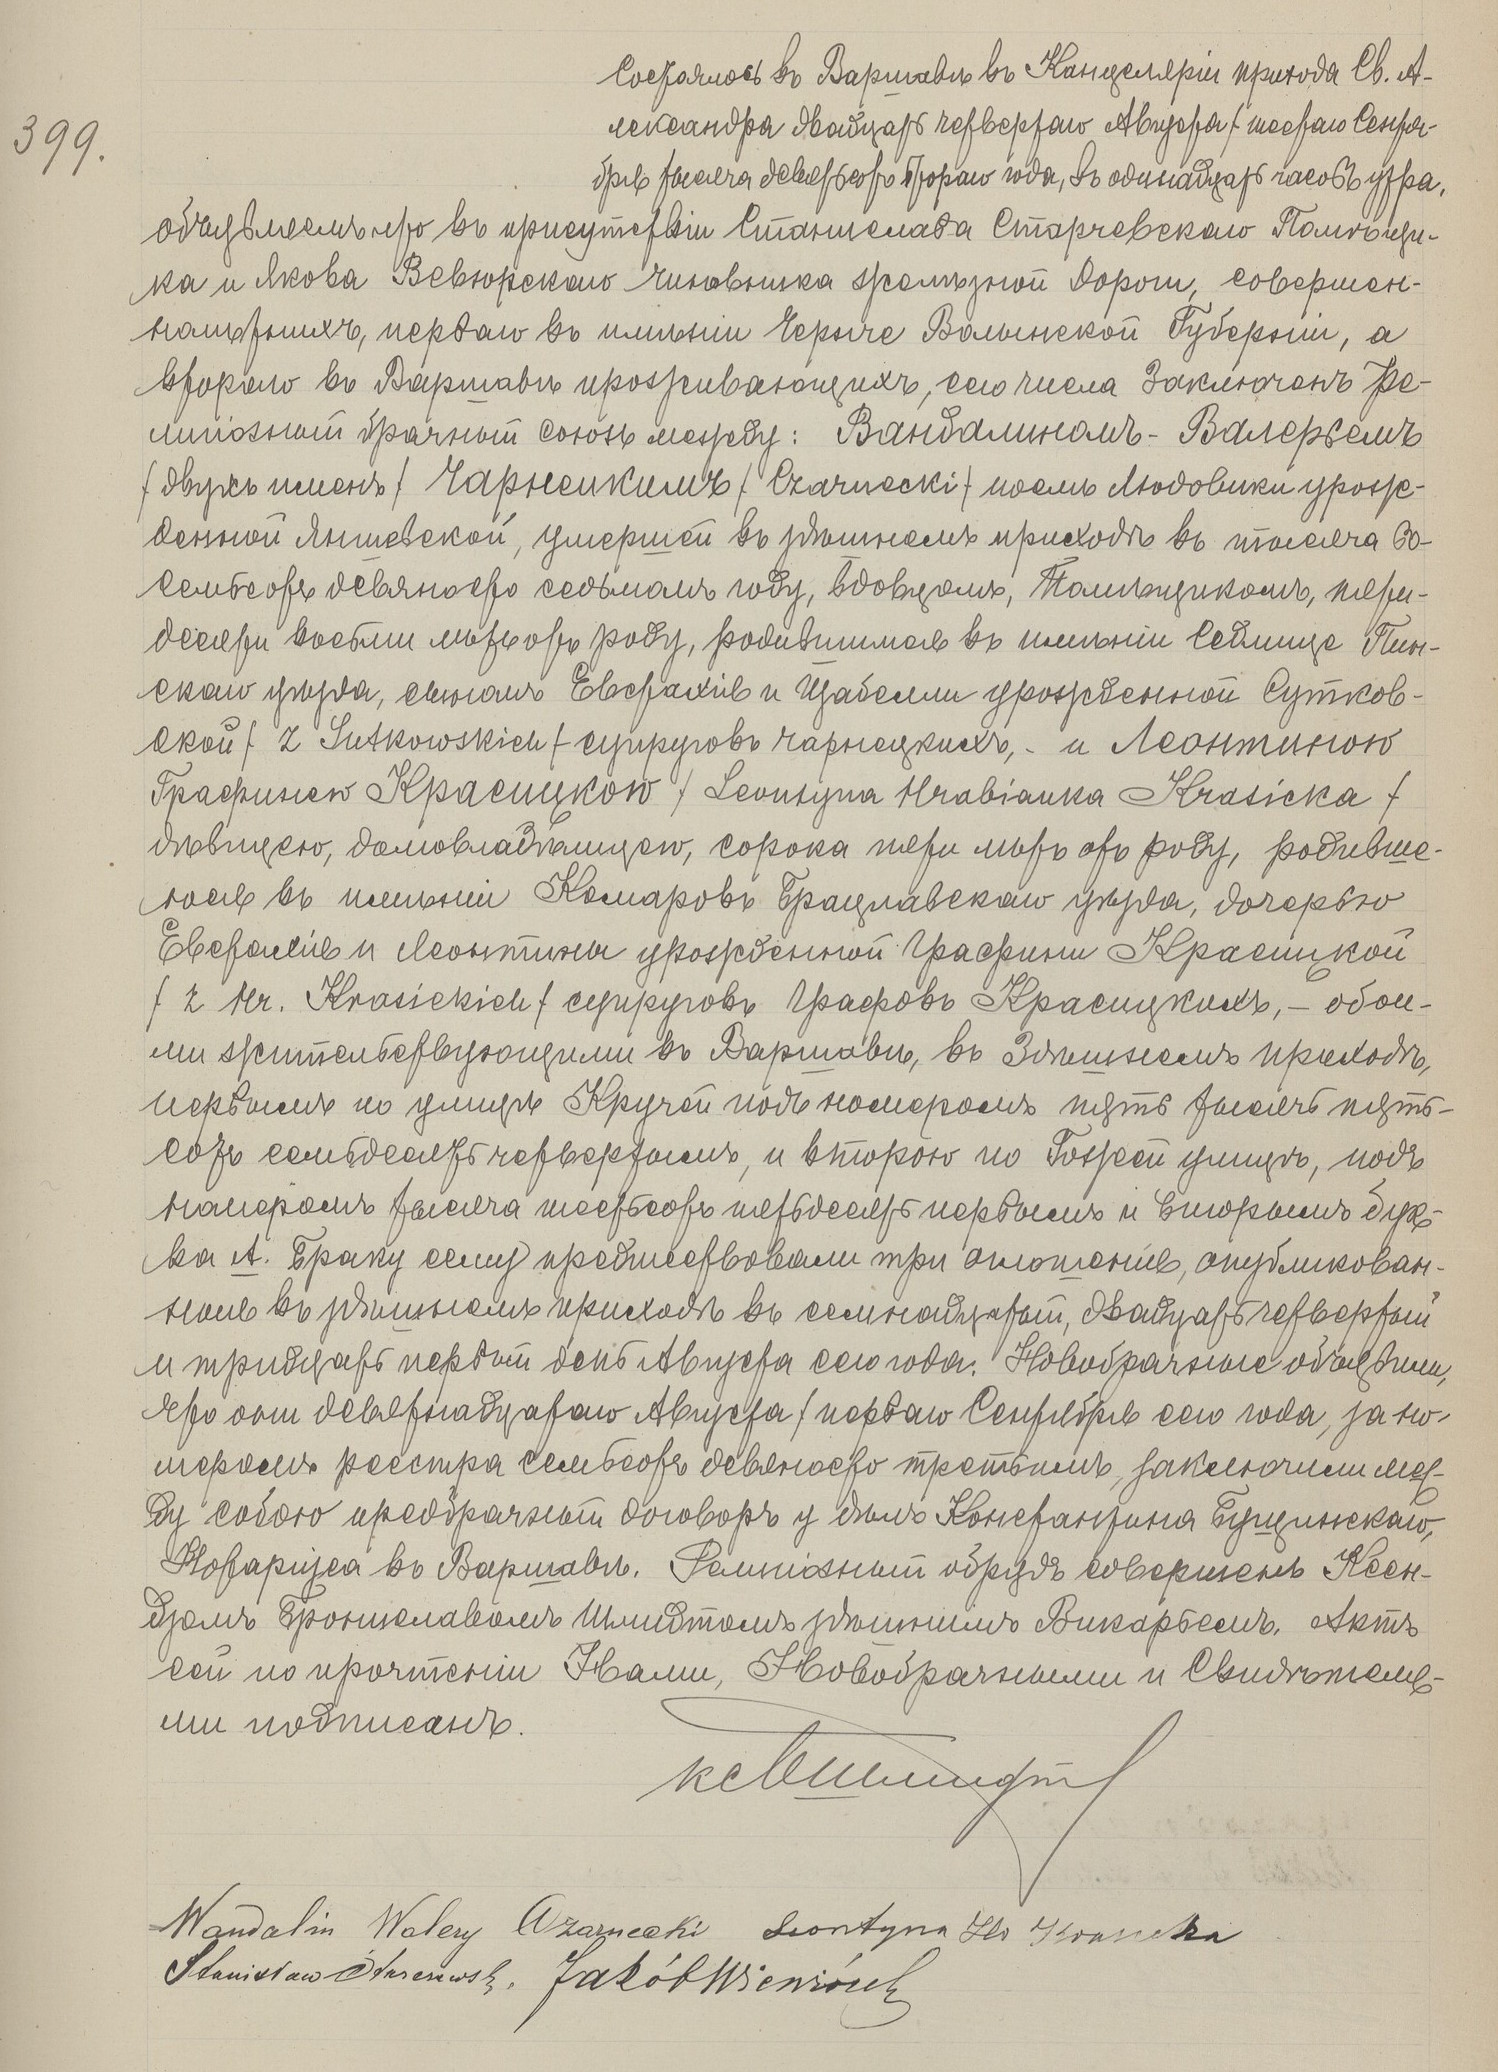 399.
Состоялось въ Варшавѣ въ Канцеляріи прихода Св. А-
лександра двадцать четвертаго Августа / шестаго Сентя-
бря тысяча девятьсотъ втораго года, въ одинадцать часовъ утра.
Объявляемъ, что въ присутствіи Станислава Старчевскаго Помѣщи-
ка и Якова Вевюрскаго чиновника желѣзной дороги, совершен-
нолѣтнихъ, перваго въ имѣніи Черче Волынской Губерніи, а
втораго въ Варшавѣ проживающихъ, сего числа заключенъ ре-
лигіозный брачный союзъ между: Вандалиномъ-Валерьемъ
/двухъ именъ/ Чарнецкимъ /Czarnecki/ послѣ Людовики урож-
денной Янишевской, умершей въ здѣшнемъ приходѣ въ тысяча во-
семьсотъ девяносто седьмомъ году, вдовцомъ, Помѣщикомъ, пяти-
десяти восьми лѣтъ отъ роду, родившимся въ имѣніи Седлище Пин-
скаго уѣзда, сыномъ Евстахія и Изабелли урожденной Сутков-
ской / z Sutkowskich / супруговъ Чарнецкихъ, - и Леонтиною
Графинею Красицкою / Leontyna Hrabianka Krasicka /
дѣвицею, домовладѣлицею, сорока пяти лѣтъ отъ роду, родивше-
юся въ имѣніи Комаровъ Брацлавскаго уѣзда, дочерью
Евстахія и Леонтины урожденной Графини Красицкой
/ z Hr. Krasickich / супруговъ Графовъ Красицкихъ, - обои-
ми жительствующими въ Варшавѣ, въ здѣшнемъ приходѣ,
первымъ по улицѣ Кручей подъ номеромъ пять тысячъ пять-
сотъ семьдесятъ четвертымъ, и второю по Гожей улицѣ, подъ
номеромъ тысяча шестьсотъ пятьдесятъ первымъ и вторымъ бук-
ва А. Браку сему предшествовали три оглашенія, опубликован-
ныя въ здѣшнемъ приходѣ въ семнадцатый, двадцать четвертый
и тридцать первый день Августа сего года. Новобрачные объявили,
что они девятнадцатаго Августа / перваго Сентября сего года, за но-
меромъ реестра семьсотъ девяносто третьимъ, заключили меж-
ду собою предбрачный договоръ у дѣлъ Константина Бущинскаго,
Нотаріуса въ Варшавѣ. Религіозный обрядъ совершенъ Ксен-
дзомъ Брониславомъ Шмидтомъ здѣшнимъ Викарьемъ. Актъ
сей по прочтеніи Нами, Новобрачными и Свидѣтеля-
ми подписанъ.
Wandalin Walery Czarnecki Leontyna Hr Krasicka
Jakób